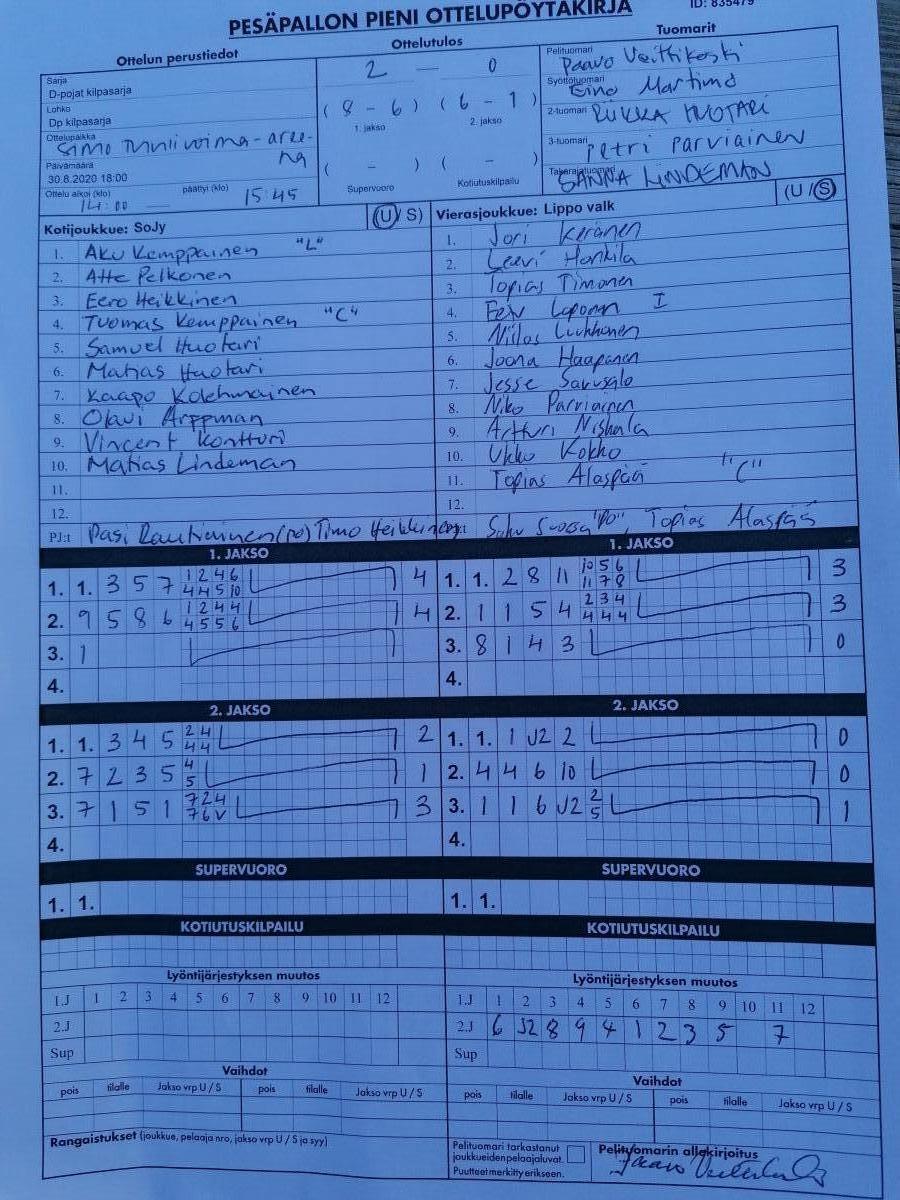 ID: 835479
PESÄPALLON PIENI OTTELUPÖYTÄKIRJA
Ottelun perustiedot
Ottelutulos
Tuomarit
Sarja
D-pojat kilpasarja
Lohko
Dp kilpasarja
Ottelupaikka
Simo Tuniivoima-aree-
na
Päivämäärä
30.8.2020 18:00
Ottelu alkoi (klo) päättyi (klo)
14:00 — 15:45
2 — 0
(8 - 6) (6 - 1)
1. jakso 2. jakso
( - ) ( - )
Supervuoro Kotiutuskilpailu
Pelituomari
Paavo Veittikoski
Syöttötuomari
Eino Martimo
2-tuomari RIIKKA HUOTARI
3-tuomari Petri Parviainen
Takarajatuomari
SANNA LINDEMAN
Kotijoukkue: SoJy (U/ S)
1. Aku Kemppainen "L"
2. Atte Pelkonen
3. Eero Heikkinen
4. Tuomas Kemppainen "C"
5. Samuel Huotari
6. Matias Huotari
7. Kaapo Kolehmainen
8. Olavi Arppman
9. Vincent Kontturi
10. Matias Lindeman
11.
12.
PJ:t Pasi Rautiainen (po) Timo Heikkinen
Vierasjoukkue: Lippo valk (U / S)
1. Jori Keränen
2. Leevi Honkila
3. Topias Timonen
4. Eeju Loponen I
5. Niilas Luukkonen
6. Joona Haapanen
7. Jesse Sarusalo
8. Niko Parviainen
9. Artturi Niskala
10. Ukko Kokko
11. Topias Alaspää "C"
12.
"PO", Topias Alaspää
1. JAKSO
1. 1. 3 5 7 1 2 4 6 4
4 4 5 10
2. 9 5 8 6 1 2 4 4 4
4 5 5 6
3. 1
4.
1. JAKSO
1. 1. 2 8 11 10 5 6 3
11 7 8
2. 1 1 5 4 2 3 4 3
4 4 4
3. 8 1 4 3 0
4.
2. JAKSO
1. 1. 3 4 5 2 4 2
4 4
2. 7 2 3 5 4 1
5
3. 7 1 5 1 7 2 4 3
7 6 V
4.
2. JAKSO
1. 1. 1 J2 2 0
2. 4 4 6 10 0
3. 1 1 6 J2 2 1
5
4.
SUPERVUORO
1. 1.
SUPERVUORO
1. 1.
KOTIUTUSKILPAILU
KOTIUTUSKILPAILU
Lyöntijärjestyksen muutos
1.J 1 2 3 4 5 6 7 8 9 10 11 12
2.J
Sup
Lyöntijärjestyksen muutos
1.J 1 2 3 4 5 6 7 8 9 10 11 12
2.J 6 J2 8 9 4 1 2 3 5 7
Sup
Vaihdot
pois tilalle Jakso vrp U / S pois tilalle Jakso vrp U / S
Vaihdot
pois tilalle Jakso vrp U / S pois tilalle Jakso vrp U / S
Rangaistukset (joukkue, pelaaja nro, jakso vrp U / S ja syy)
Pelituomari tarkastanut
joukkueidenpelaajaluvat.
Puutteet merkitty erikseen.
Pelituomarin allekirjoitus